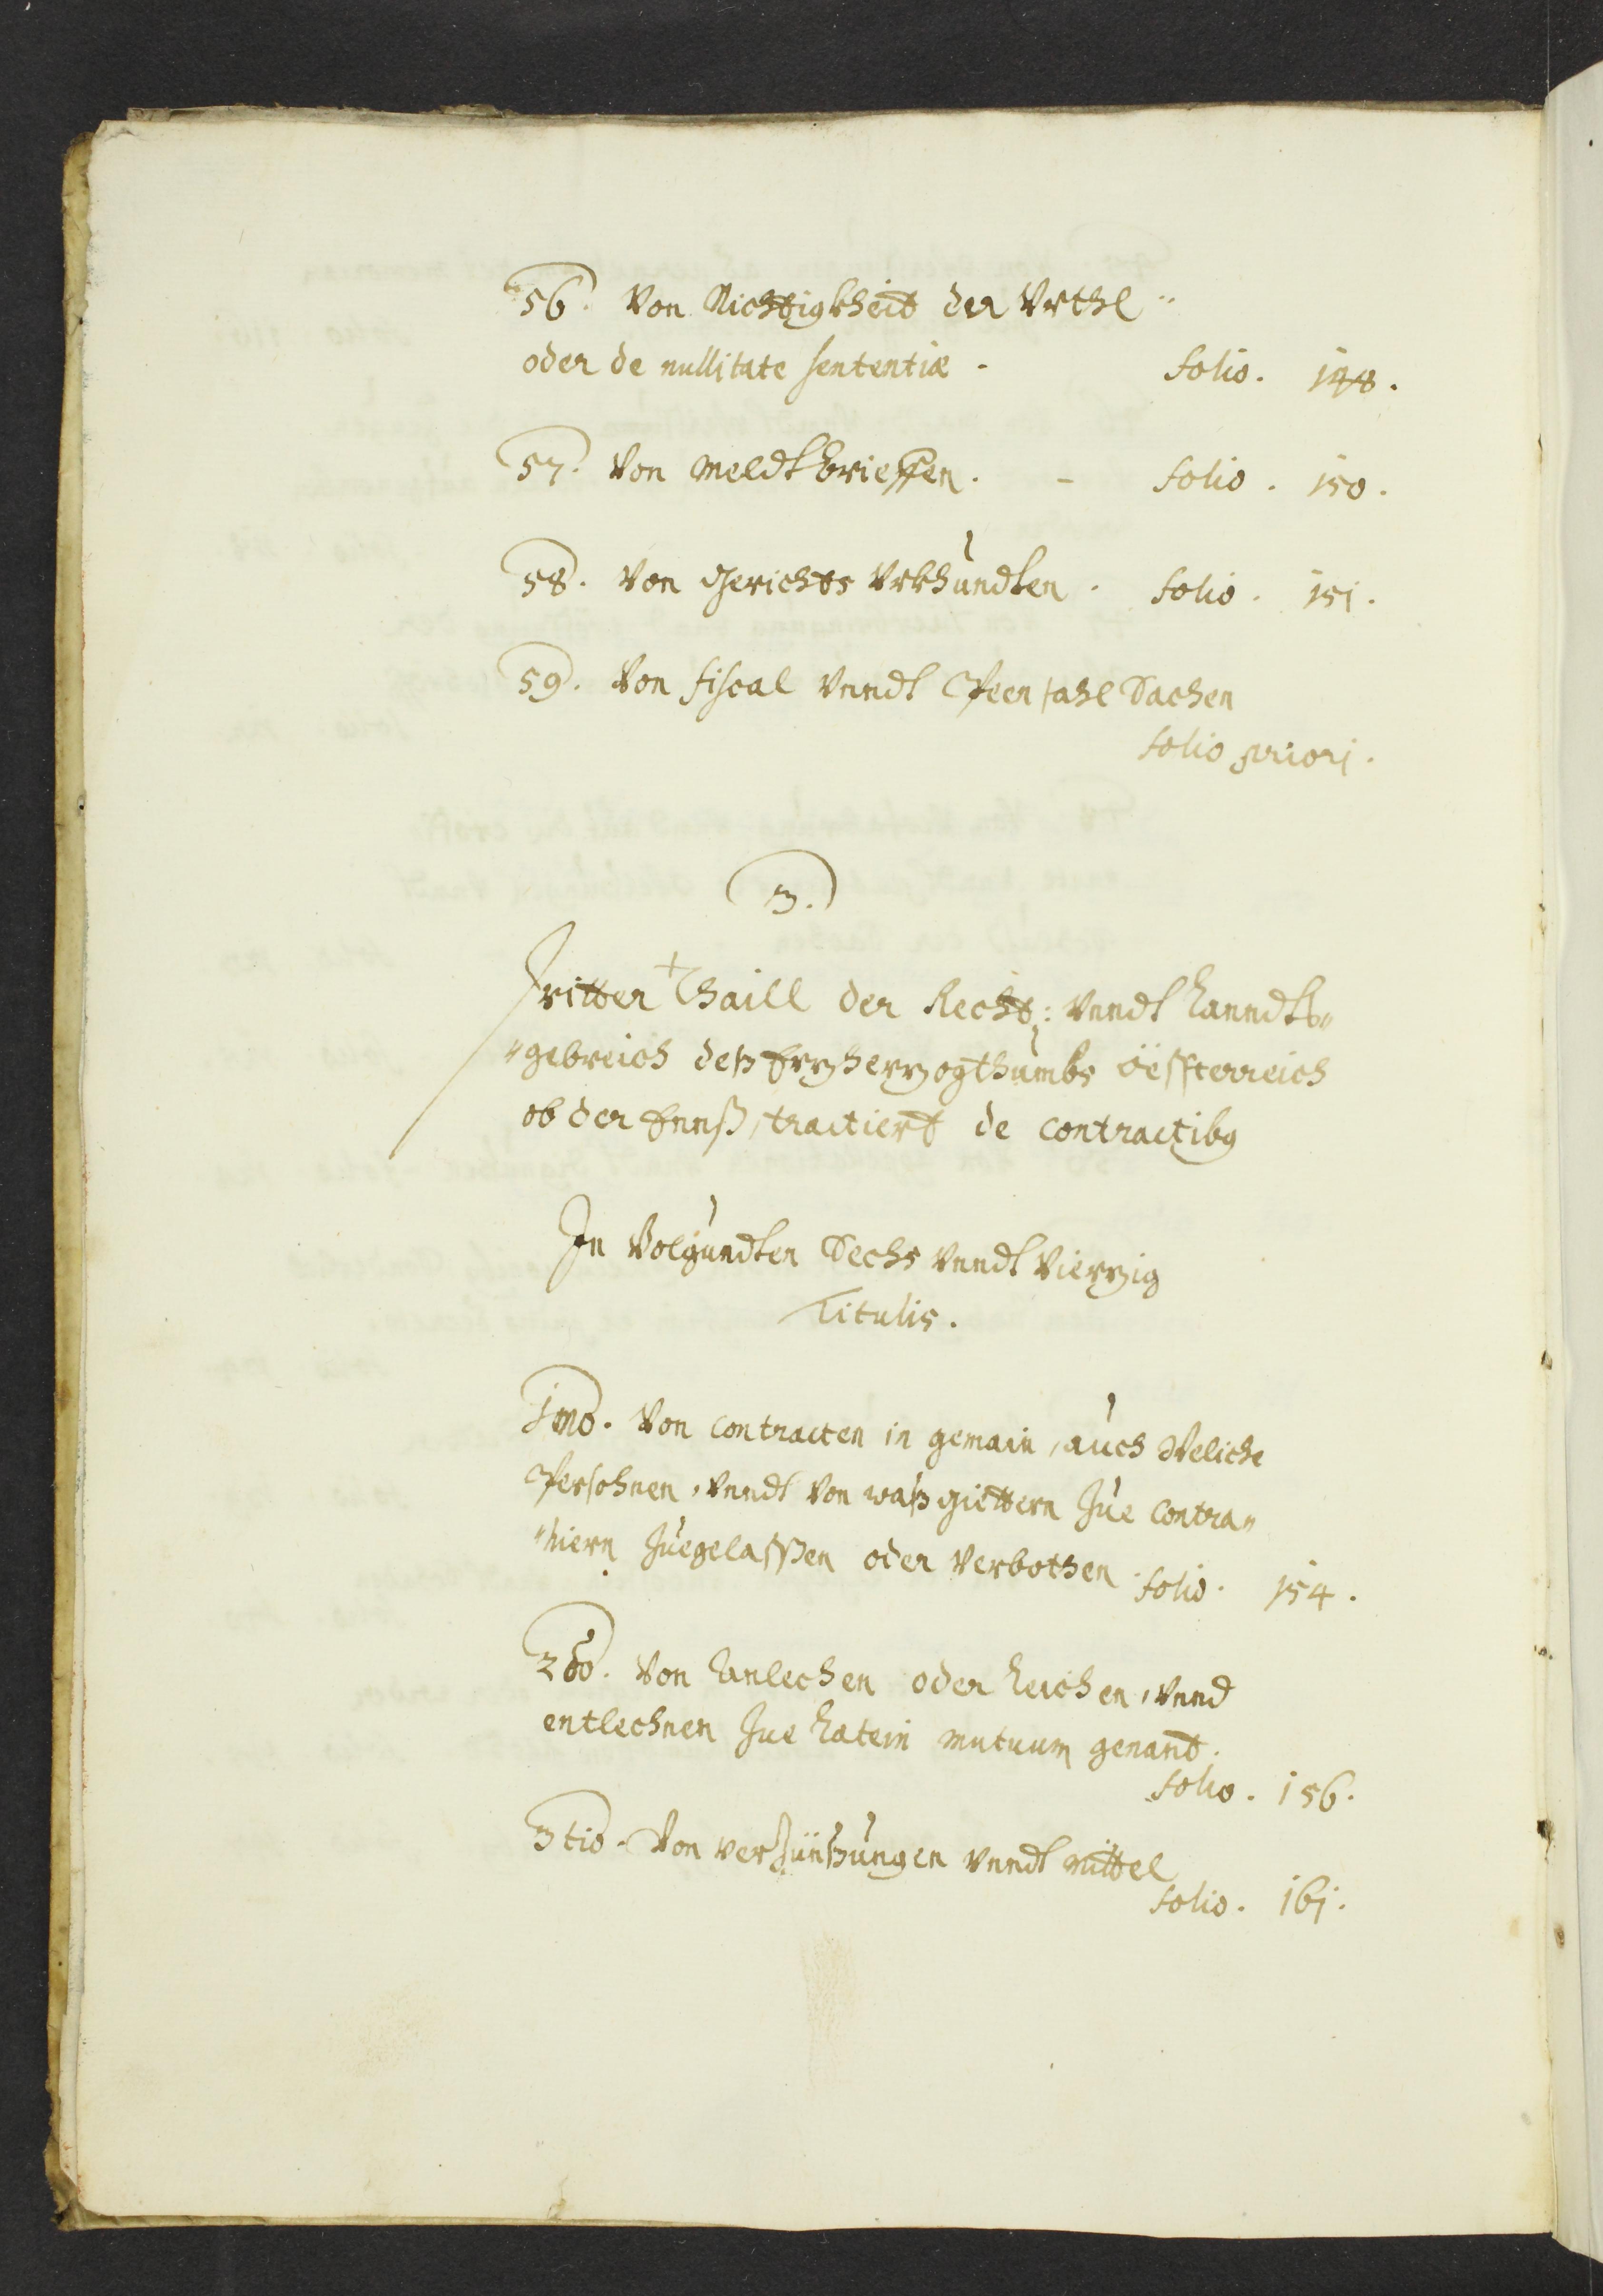 56. Von Nichtigkheit der Vrthl
oder de nullitate sententiæ . folio. 148.
57. Von Meldtbrieffen. - folio. 150.
58. Von Gerichts Vrkhundten. folio. 151.
59. Von fiscal vnndt Peenfahl Sachen
folio priori.
3.
Dritter Thaill der Recht: vnndt Lanndts"
"gebreich deß Erzherzogthumbs Öessterreich
ob der Ennß, tractiert de contractibus
In Volgundten Sechs vnndt Vierzig
Titulis.
1mo. Von contracten in gemain, auch Weliche
Persohnen, vnndt von waß giettern Zue contra"
"hiern Zuegelassen oder Verbothen. folio. 154.
2do. Von Lanlechen oder Leichen, vnnd
entlechnen Zue Latein mutuum genandt.
folio. 156.
3tio. Von verZünßungen vnndt mittel
folio. 161.